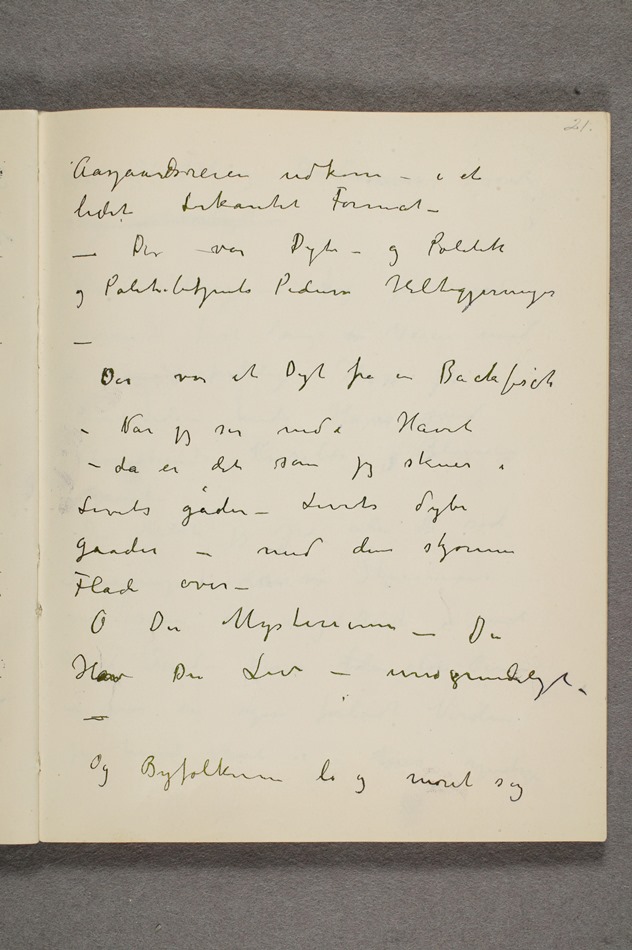 21.
Aasgaardsreien udkom – i et
lidet firkantet Format –
— Der var Digte – og Politik
og Politibetjents Pedersens Heltegjerninger
—
Der var et Digt fra en Backfisch
– Nar jeg ser ned i Havet
– da er det som jeg skuer i
Livets gåder – Livets dybe
gaader – med den skjønne
Flade over –
O Du Mysterium – Du
Hav Du Liv – uudgrundeligt –
—
Og Byfolkene lo og moret sig